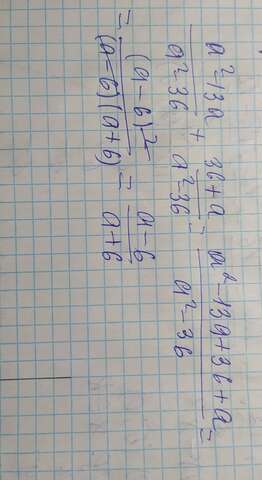 (a²-13a)/(a²-36) + (36+a)/(a²-36) = (a²-13a+36+a)/(a²-36) =
= (a-6)²/((a-6)(a+6)) = (a-6)/(a+6)